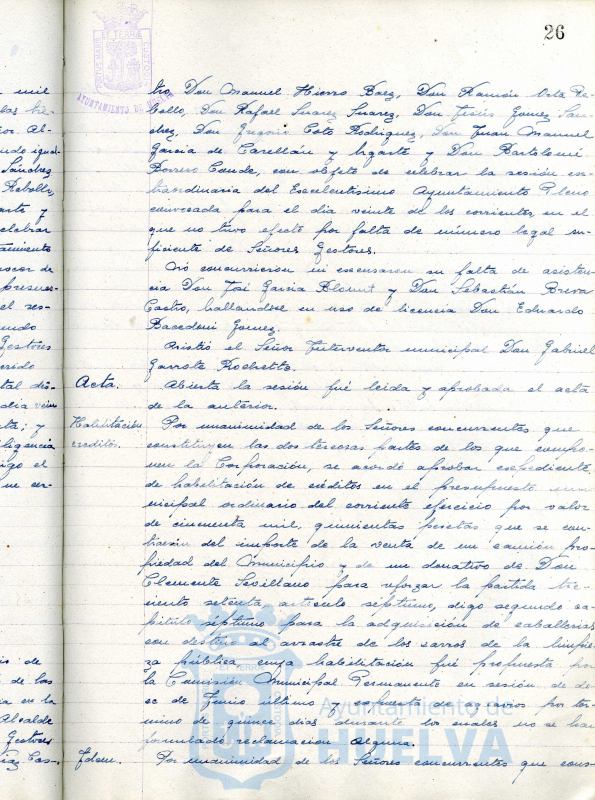 26
AYUNTAMIENTO DE HUELVA
tro, Don Manuel Hierro Baez, Don Ramón Vela Re-
bollo, Don Rafael Suarez Suarez, Don Jesús Gomez San-
chez, Don Gregorio Coto Rodriguez, Don Juan Manuel
Garcia de Carellán y Ugarte y Don Bartolomé
Borrero Conde, con objeto de celebrar la sesión ex-
traordinaria del Excelentísimo Ayuntamiento Pleno
convocada para el dia veinte de los corrientes, en el
que no tuvo efecto por falta de número legal su-
ficiente de Señores Gestores.
No concurrieron ni excusaron su falta de asisten-
cia Don José Garcia y Don Sebastián
Castro, hallandose en uso de licencia Don Eduardo
Gomez.
Asistió el Señor Interventor municipal Don Gabriel
Garrote
Acta. Abierta la sesión fué leida y aprobada el acta
de la anterior.
Habilitación Por unanimidad de los Señores concurrentes que
creditos. constituyen las dos terceras partes de los que compo-
nen la Corporación, se acordó aprobar expediente
de habilitación de créditos en el presupuesto mu-
nicipal ordinario del corriente ejercicio por valor
de cincuenta mil, quinientas pesetas que se con-
traerán del importe de la venta de un camión pro-
piedad del Municipio y de un donativo de Don
Clemente Sevillano para reforzar la partida tres-
ciento setenta, articulo séptimo, digo segundo ca-
pitulo séptimo para la adquisición de caballerias
con destino al arrastre de los carros de la limpie-
za pública cuya habilitación fué propuesta por
la Comisión Municipal Permanente en sesión de do-
ce de Junio último y expuesta de recursos por tér-
mino de quince dias durante los cuales no se han
formulado reclamación alguna.
Idem. Por unanimidad de los Señores concurrentes que cons-
Ayuntamiento de
HUELVA